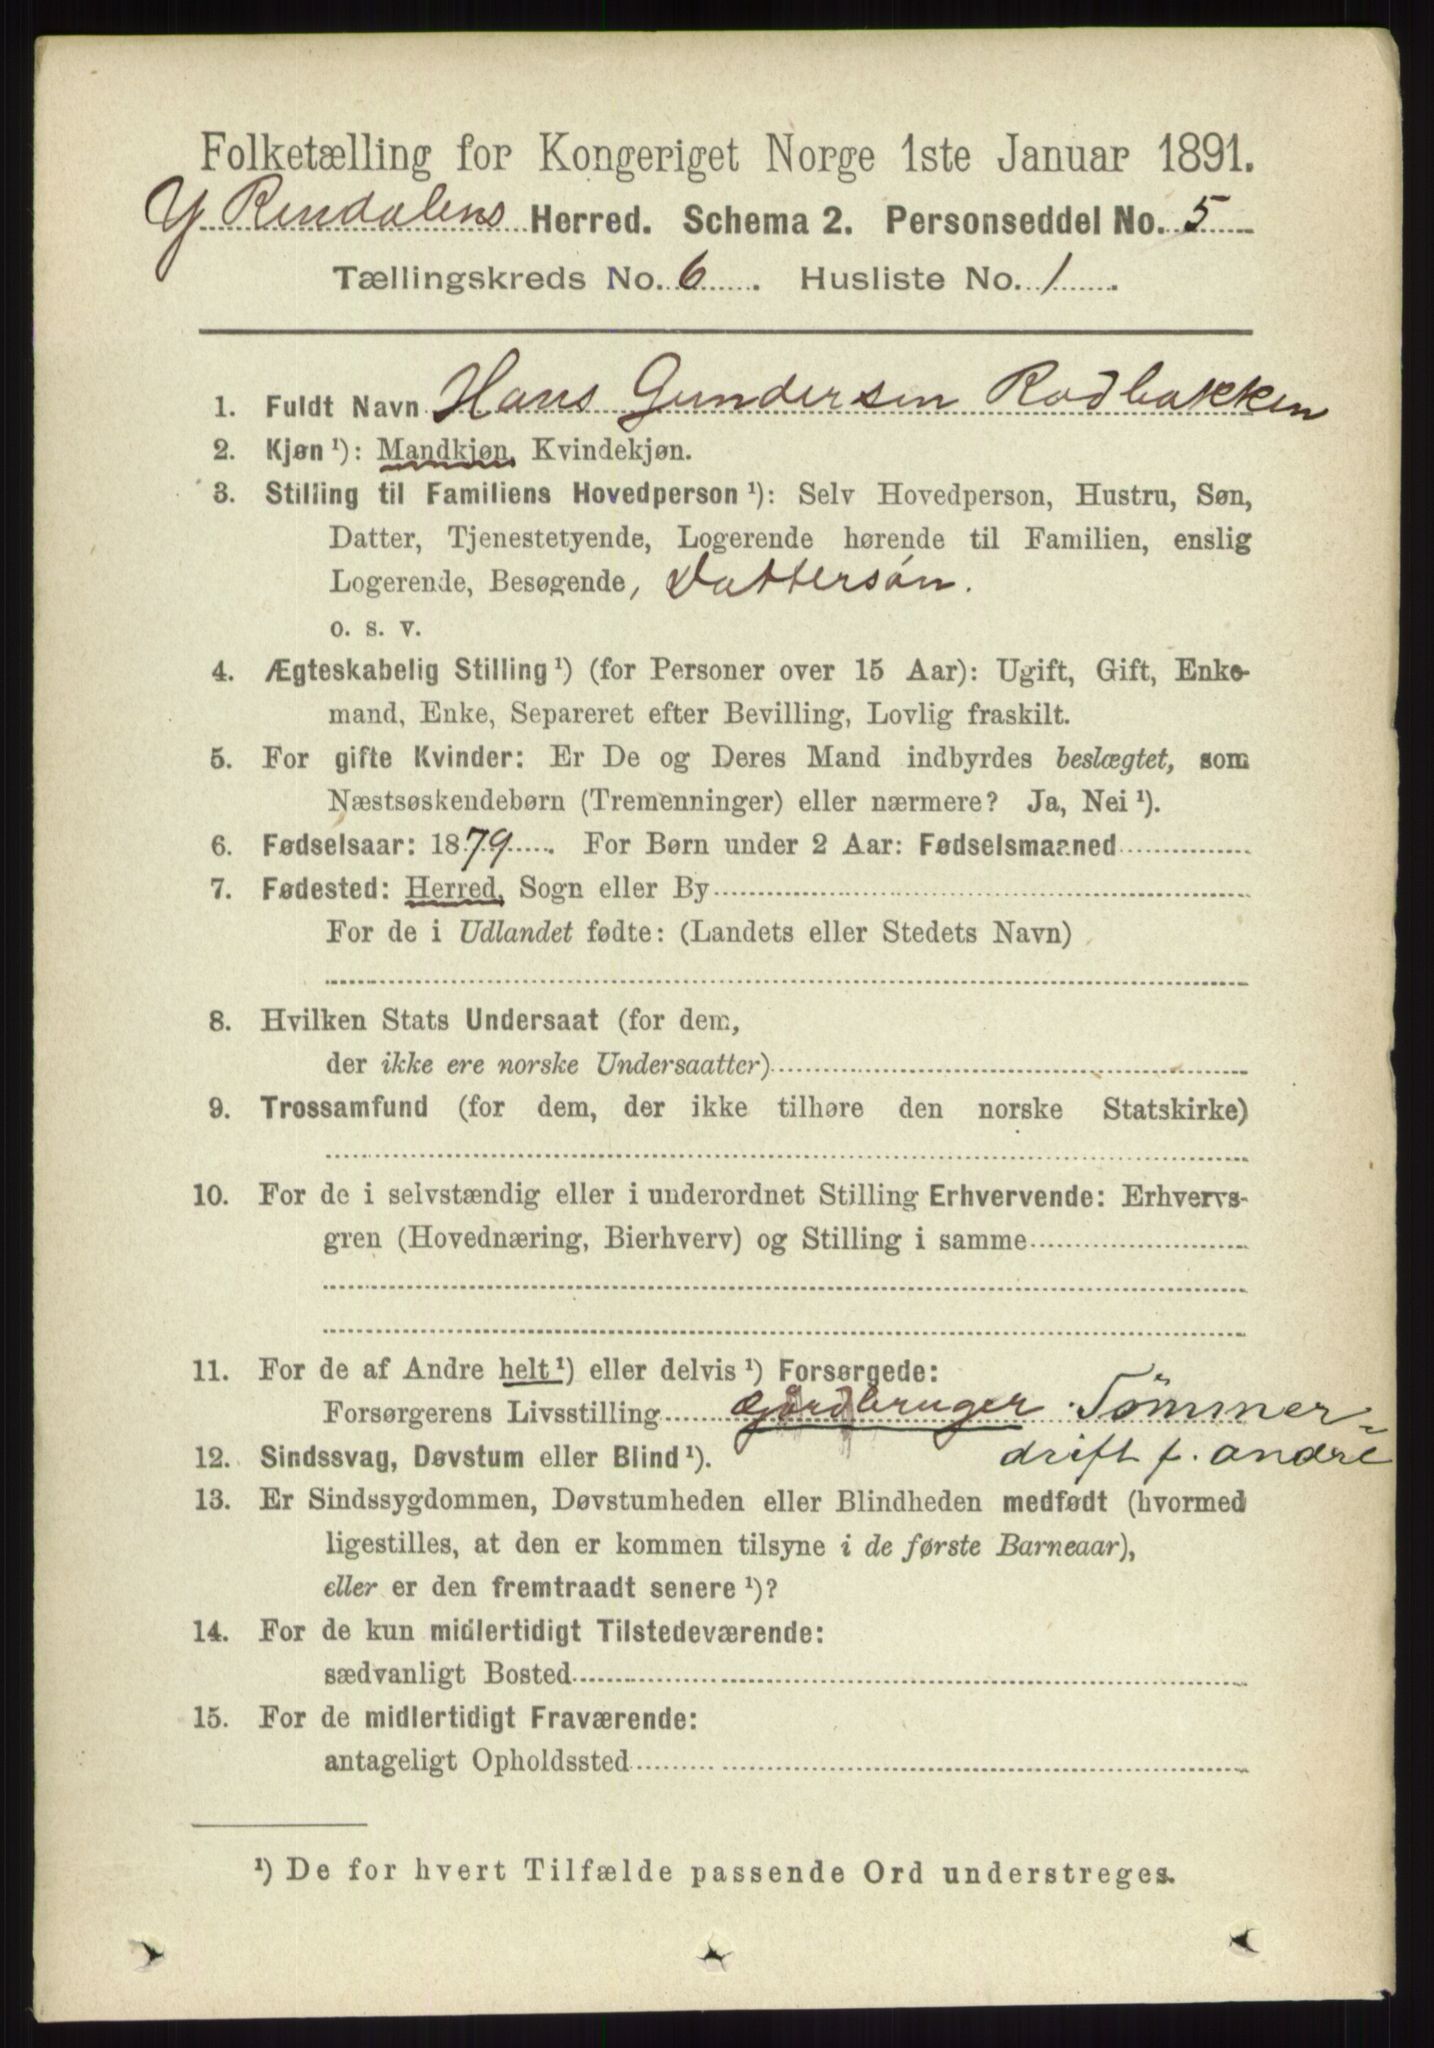 Folketælling for Kongeriget Norge 1ste Januar 1891.
Y Rendalens Herred. Schema 2. Personseddel No. 5
Tællingskreds No. 6. Husliste No. 1.
1. Fuldt Navn Hans Gundersen Rodbakken
2. Kjøn ¹): Mandkjøn, Kvindekjøn.
3. Stilling til Familiens Hovedperson ¹): Selv Hovedperson, Hustru, Søn,
Datter, Tjenestetyende, Logerende hørende til Familien, enslig
Logerende, Besøgende, Dattersøn.
o. s. v.
4. Ægteskabelig Stilling ¹) (for Personer over 15 Aar): Ugift, Gift, Enke-
mand, Enke, Separeret efter Bevilling, Lovlig fraskilt.
5. For gifte Kvinder: Er De og Deres Mand indbyrdes beslægtet, som
Næstsøskendebørn (Tremenninger) eller nærmere? Ja, Nei ¹).
6. Fødselsaar: 1879. For Børn under 2 Aar: Fødselsmaaned
7. Fødested: Herred, Sogn eller By
For de i Udlandet fødte: (Landets eller Stedets Navn)
8. Hvilken Stats Undersaat (for dem,
der ikke ere norske Undersaatter)
9. Trossamfund (for dem, der ikke tilhøre den norske Statskirke)
10. For de i selvstændig eller i underordnet Stilling Erhvervende: Erhvervs-
gren (Hovednæring, Bierhverv) og Stilling i samme
11. For de af Andre helt ¹) eller delvis ¹) Forsørgede:
Forsørgerens Livsstilling Gårdbruger Tömmer-
12. Sindssvag, Døvstum eller Blind ¹). drift f. andre
13. Er Sindssygdommen, Døvstumheden eller Blindheden medfødt (hvormed
ligestilles, at den er kommen tilsyne i de første Barneaar),
eller er den fremtraadt senere ¹)?
14. For de kun midlertidigt Tilstedeværende:
sædvanligt Bosted
15. For de midlertidigt Fraværende:
antageligt Opholdssted
¹) De for hvert Tilfælde passende Ord understreges.